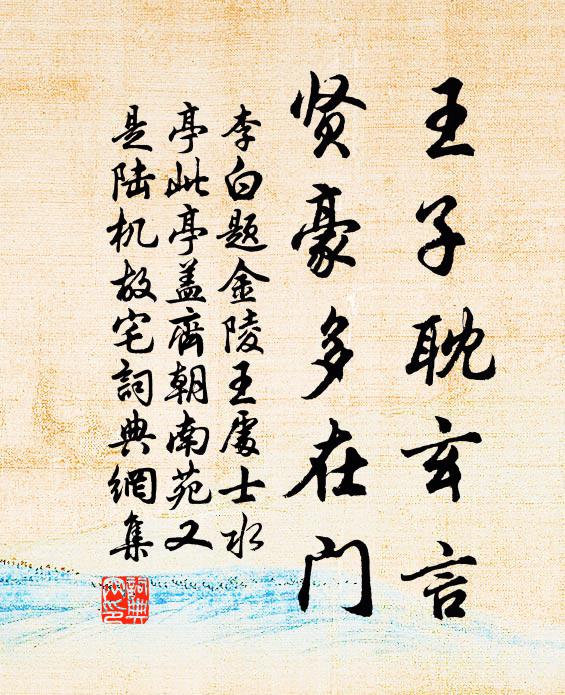 王子耽玄言
贤豪多在门
李白题金陵王处士水
亭此亭盖齊朝南苑又
是陆机故宅詞典網集